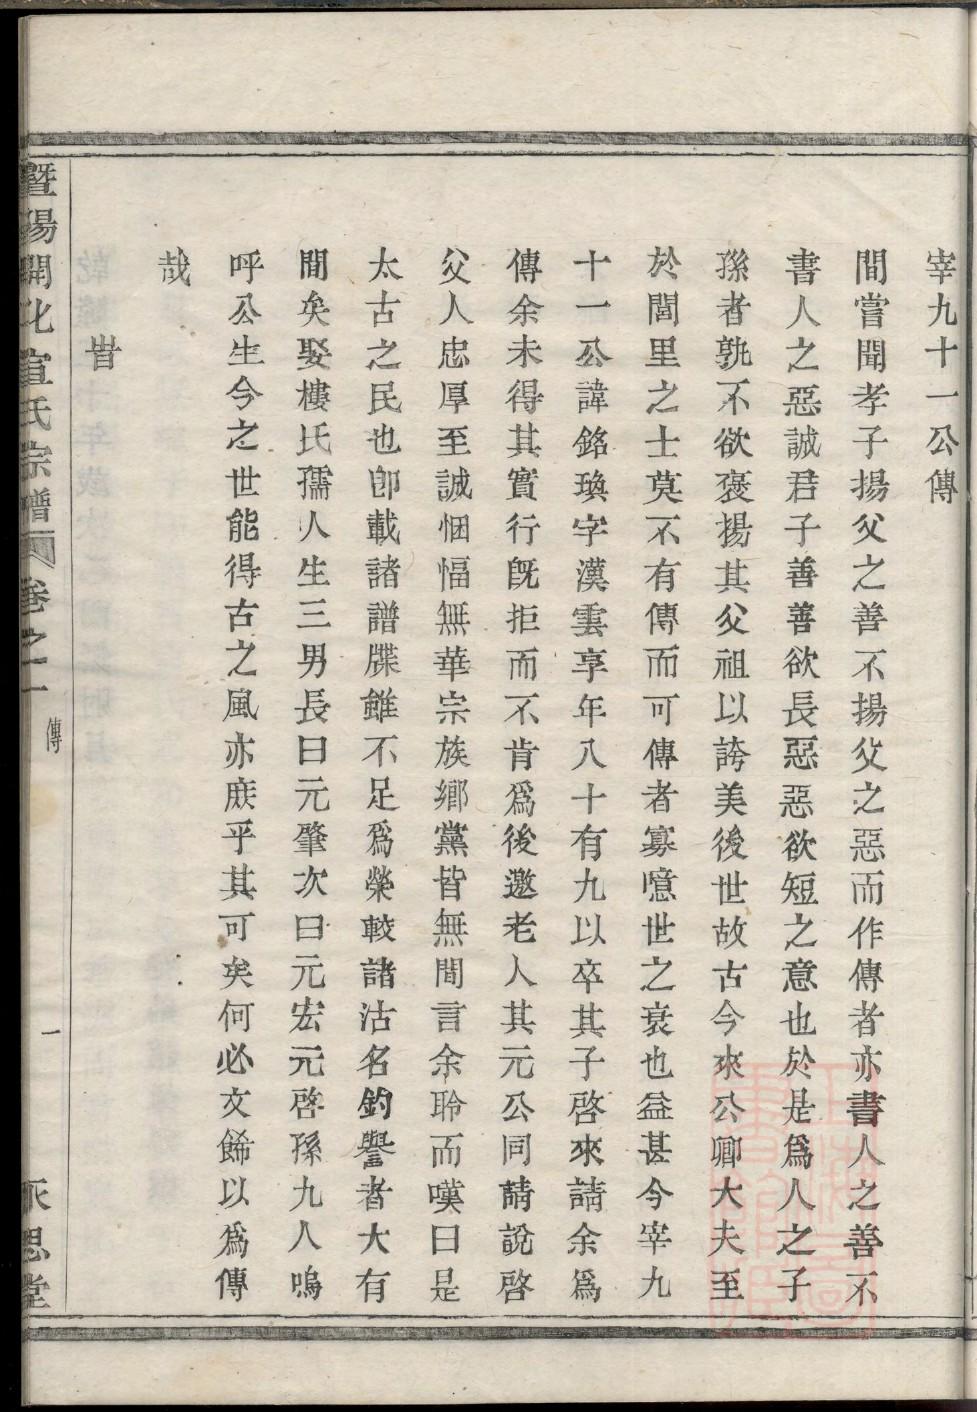 宰九十一公傳
間嘗聞孝子揚父之善不揚父之惡而作傳者亦書人之善不
書人之惡誠君子善善欲長惡惡欲短之意也於是爲人之子
孫者孰不欲褒揚其父祖以誇美後世故古今來公卿大夫至
於閭里之士莫不有傳而可傳者寡噫世之衰也益甚今宰九
十一公諱銘瑍字漢雲享年八十有九以卒其子啓來請余爲
傳余未得其實行旣拒而不肯爲後邀老人其元公同請說啓
父人忠厚至誠悃愊無華宗族鄉黨皆無間言余聆而嘆曰是
太古之民也卽載諸譜牒雖不足爲榮較諸沽名釣譽者大有
間矣娶樓氏孺人生三男長曰元肇次曰元宏元啓孫九人嗚
呼公生今之世能得古之風亦庶乎其可矣何必文餙以爲傳
哉
旹
暨陽開化宣氏宗譜 卷之一 傳 一 永思堂